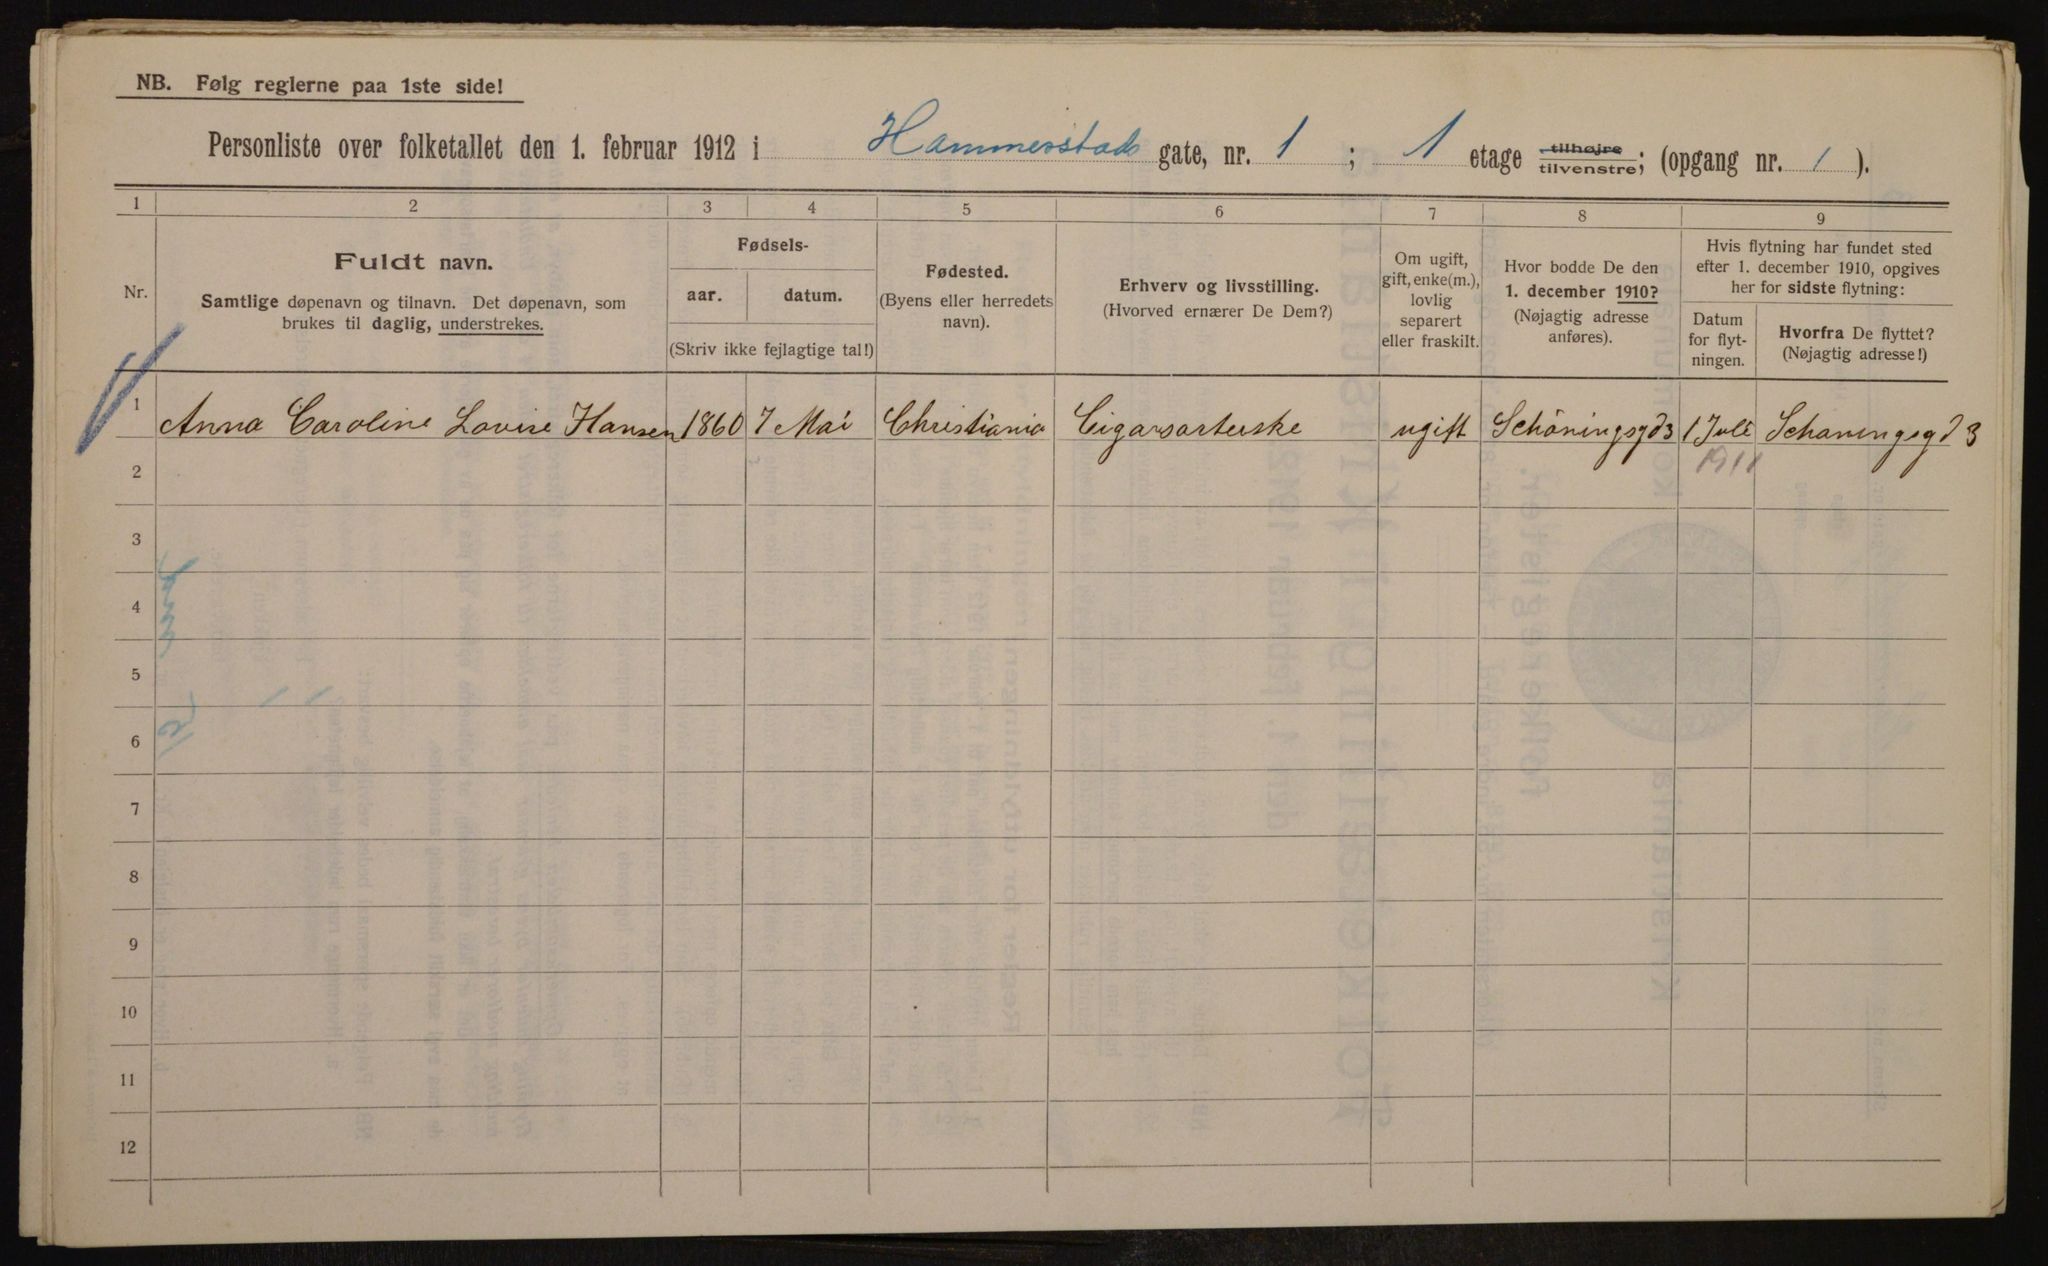 NB. Følg reglerne paa 1ste side!
Personliste over folketallet den 1. februar 1912 i Hammerstads gate, nr. 1 ; 1 etage tilhøjre tilvenstre; (opgang nr. 1 ).
1 2 3 4 5 6 7 8 9
Nr.
Fuldt navn.
Samtlige døpenavn og tilnavn. Det døpenavn, som
brukes til daglig, understrekes.
Fødsels-
aar. datum.
(Skriv ikke fejlagtige tal!)
Fødested.
(Byens eller herredets
navn).
Erhverv og livsstilling.
(Hvorved ernærer De Dem?)
Om ugift,
gift, enke(m.),
lovlig
separert
eller fraskilt.
Hvor bodde De den
1. december 1910?
(Nøjagtig adresse
anføres).
Hvis flytning har fundet sted
efter 1. december 1910, opgives
her for sidste flytning:
Datum
for flyt-
ningen.
Hvorfra De flyttet?
(Nøjagtig adresse!)
1 Anna Caroline Lovise Hansen 1860 7 Mai Christiania Cigarsorterske ugift Schöningsgd 3 1 Juli Schaningsgd 3
1911
2
3
4
5
6
7
8
9
10
11
12